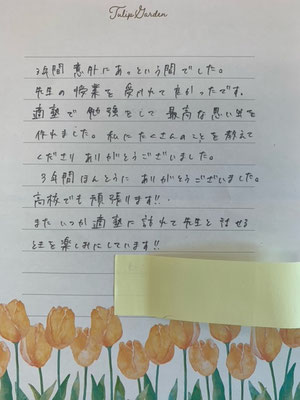 Tulip Garden
3年間 意外にあっという間でした。
先生の授業を受けれて良かったです。
適塾で勉強をして最高な思い出を
作れました。私にたくさんのことを教えて
くださりありがとうございました。
3年間ほんとうにありがとうございました。
高校でも頑張ります!!
またいつか適塾に訪れて先生と話せる
日を楽しみにしています!!